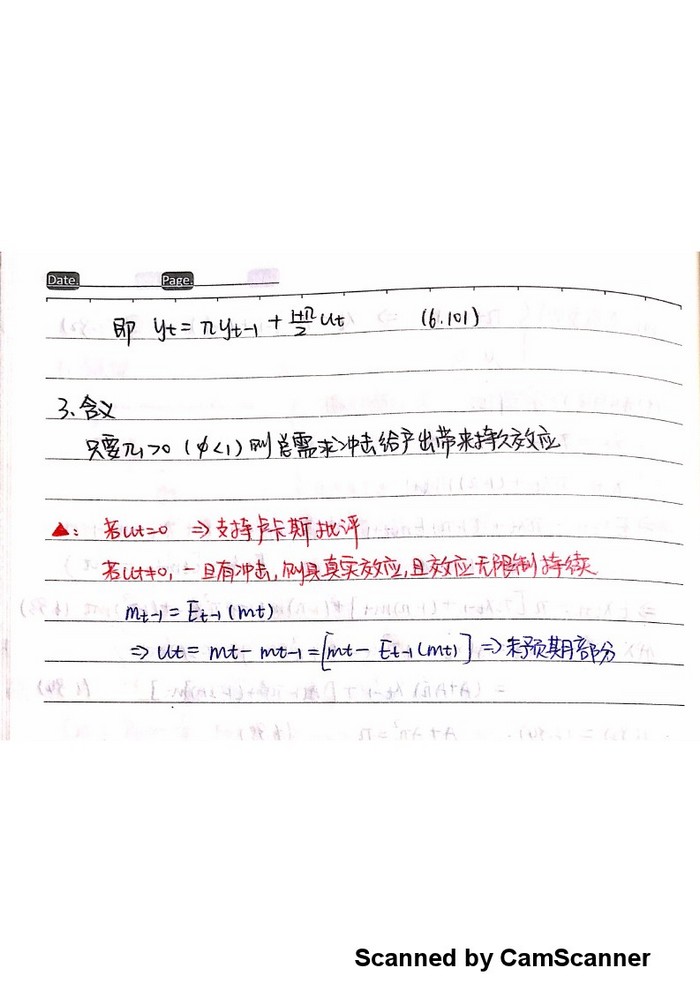 Date.
Page.
即 yt = πyt-1 + (1+π)/2 ut (6.101)
3、含义
只要π1>0 (φ<1) 则总需求冲击给产出带来持久效应
▲: 若ut=0 ⇒支持卢卡斯批评
若ut≠0, 一旦有冲击, 则具真实效应, 且效应无限制持续
mt-1 = Et-1(mt)
⇒ ut = mt - mt-1 = [mt - Et-1(mt)] ⇒未预期部分
Scanned by CamScanner